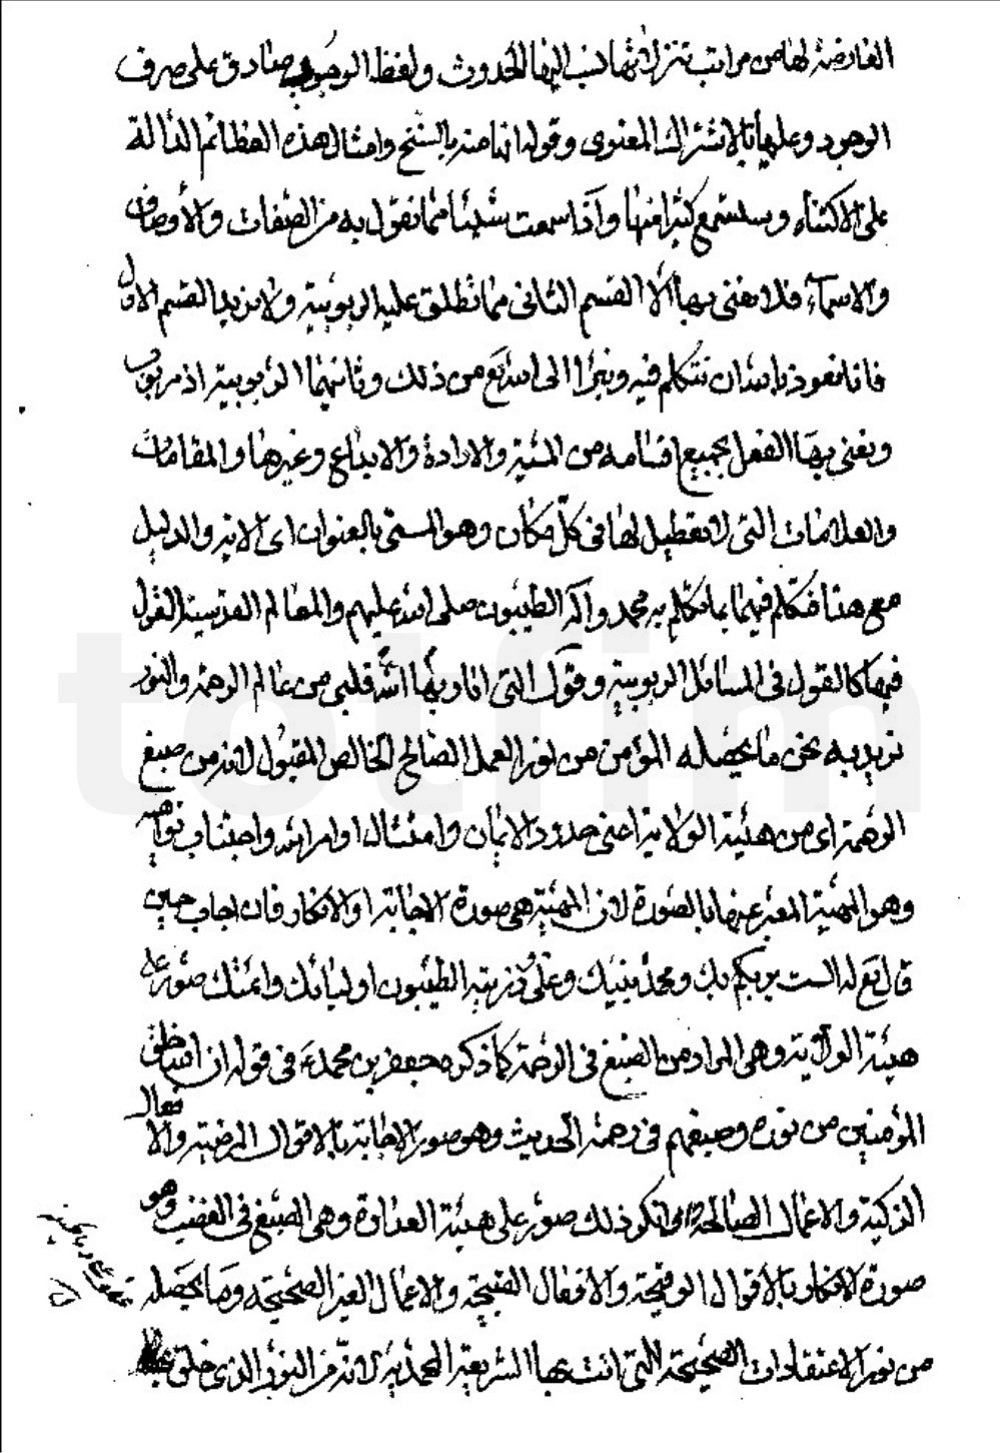 العارضة لها من مراتب تنزلاتها نسب اليها الحدوث ولفظ الوجوب صادق على صرف
الوجود وعليها بالاشتراك المعنوى وقوله انا منه بالسنخ وامثال هذه العظائم الدالة
على الاكتناه وستسمع كثيرا منها واذا سمعت شيئا مما نقول به من الصفات والأوصاف
والاسمآء فلا نعنى بها الا القسم الثانى مما تطلق عليه الربوبية ولا نريد القسم الاول
فانا نعوذ بالله ان نتكلم فيه ونبرأ الى الله تع من ذلك وثانيهما الربوبية اذ مربوب
ونعنى بها الفعل بجميع اقسامه من المشية والارادة والابداع وغيرها والمقامات
والعلامات التى لا تعطيل لها فى كل مكان وهو المسمى بالعنوان اى الاية والدليل
مع هذا فنتكلم فيهما بما تكلم به محمد وآله الطيبون صلى الله عليهم والمعالم القدسية القول
فيها كالقول فى المسائل الربوبية وقولك التى اناربها الله قلبى من عالم الرحمة والنور
نريد به نحن ما يحصله المؤمن من نور العمل الصالح الخالص المقبول لانه من صبغ
الرحمة اى من هيئة الولاية اعنى حدود الايمان وامتثال اوامر الله واجتناب نواهيه
وهو الهيئة المعبر عنها بالصورة لان الهيئة هى صورة الاجابة او الانكار فان اجاب حين
قال تع له الست بربكم بك ومحمد نبيك وعلى وذريته الطيبون اوليائك وائمتك صور على
هيئة الولاية وهى المراد من الصبغ فى الرحمة كما ذكره جعفر بن محمد ع فى قوله ان الله خلق
المؤمنين من نوره وصبغهم فى رحمته الحديث وهو صور الاجابة بالاقوال المرضية والافعال
الزكية والاعمال الصالحة وان انكر ذلك صور على هيئة العداوة وهى الصبغ فى الغضب وهو
صورة الانكار بالأقوال القبيحة والاعمال الغير الصحيحة وما يحصله
من نور الاعتقادات الصحيحة التى اتت بها الشريعة المحمدية لانه من النور الذى خلق
totfim